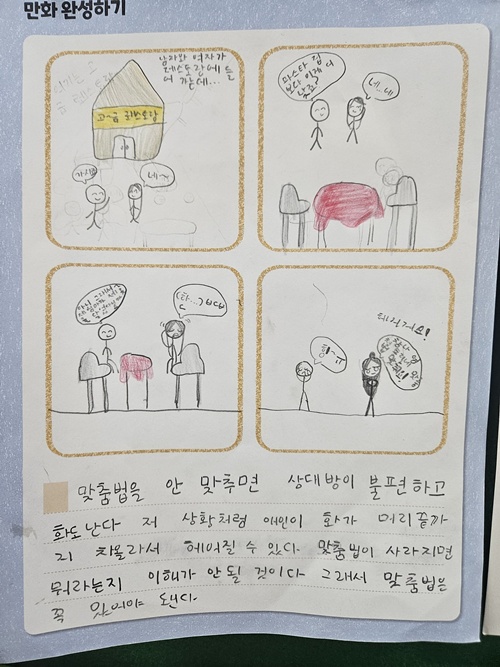 만화 완성하기
남자와 여자가
레스토랑에 들
어 가는데...
고~급 레스토랑
가시죠
네~
파스타 집
보다 이게 더
낫죠?
네...네
헤어져요!
맞춤법을 안 맞추면 상대방이 불편하고
화도난다 저 상화처럼 애인이 화가 머리끝까
지 차올라서 헤어질 수 있다. 맞춤법이 사라지면
뭐라는지 이해가 안될 것이다 그래서 맞춤법은
꼭 있어야 됀다.